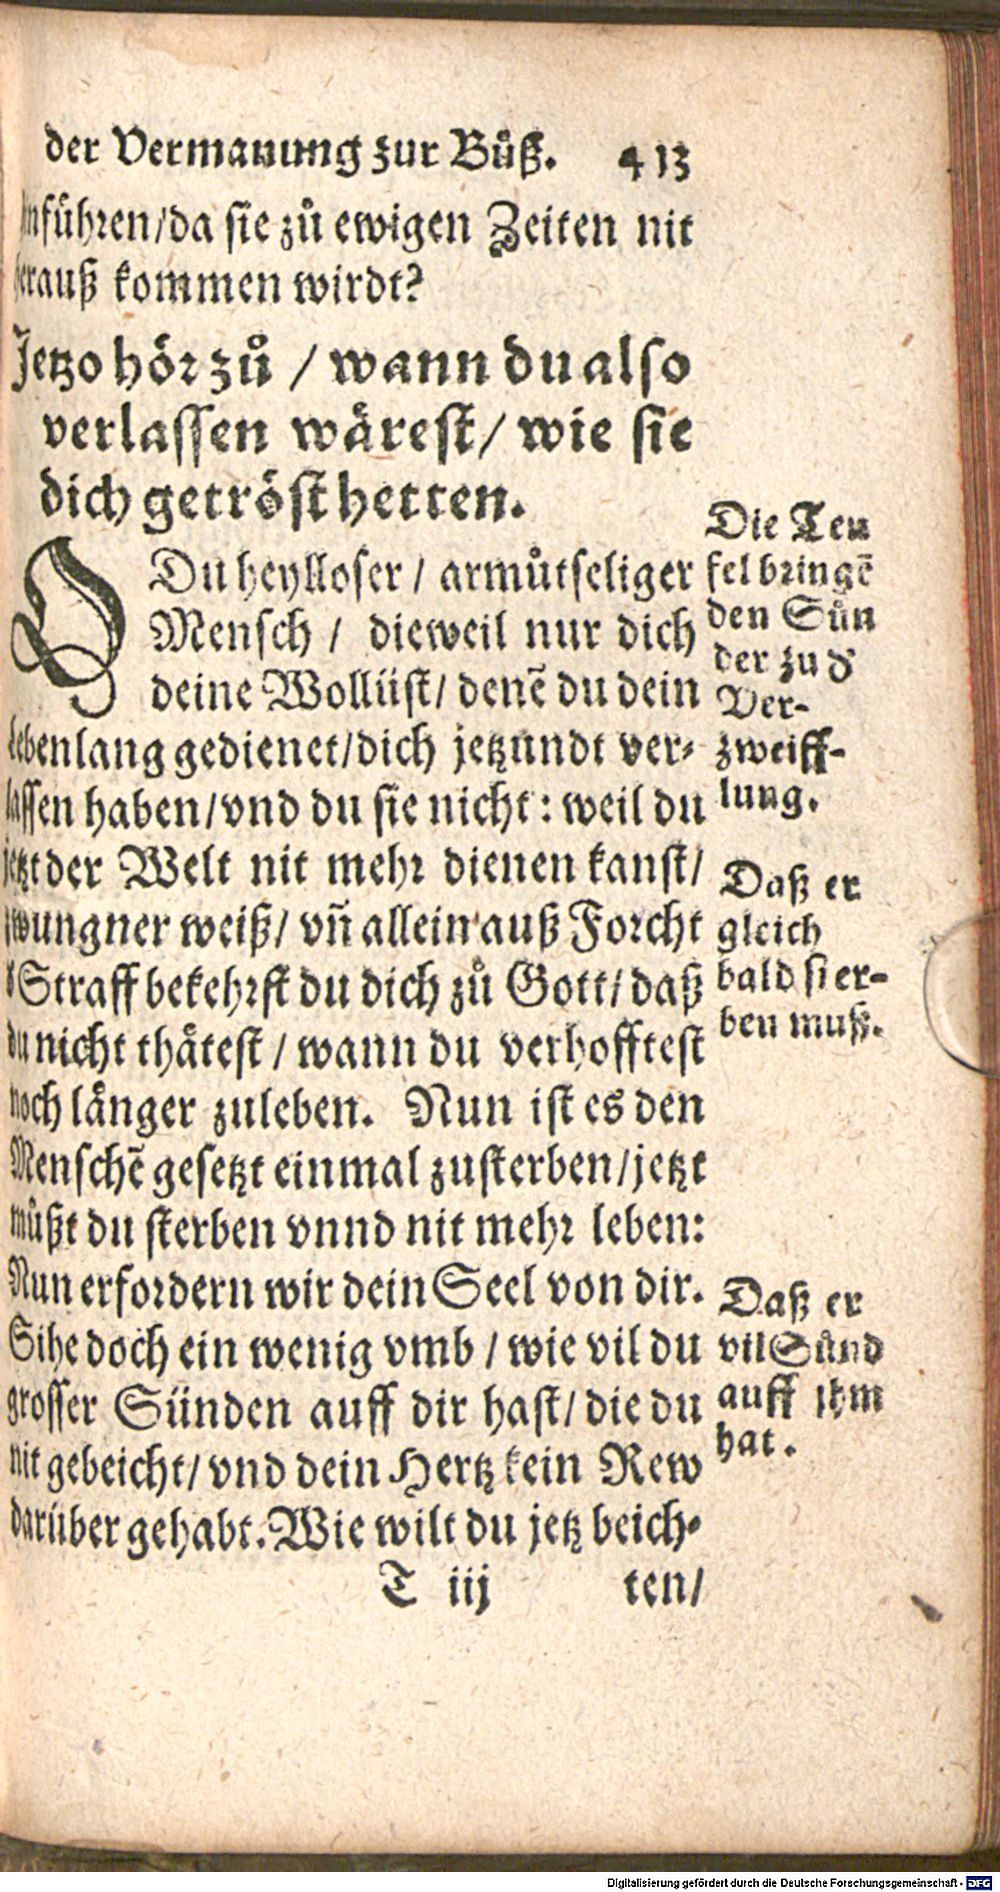 der Vermanung zur Bůß. 413
inführen/da sie zů ewigen Zeiten nit
herauß kommen wirdt?
Jetzo hör zů / wann du also
verlassen wårest/ wie sie
dich getröst hetten.
O Du heylloser / armůtseliger
Mensch / dieweil nur dich
deine Wollüst/ denẽ du dein
Lebenlang gedienet/dich jetzundt ver-
lassen haben/vnd du sie nicht: weil du
jetzt der Welt nit mehr dienen kanst/
zwungner weiß/ vñ allein auß Forcht
d' Straff bekehrst du dich zů Gott/ daß
du nicht thåtest / wann du verhofftest
noch långer zuleben. Nun ist es den
Menschẽ gesetzt einmal zusterben/jetzt
můßt du sterben vnnd nit mehr leben:
Nun erfordern wir dein Seel von dir.
Sihe doch ein wenig vmb / wie vil du
grosser Sünden auff dir hast/ die du
nit gebeicht/ vnd dein Hertz kein Rew
darüber gehabt. Wie wilt du jetz beich-
T iij ten/
Die Teu
fel bringẽ
den Sůn
der zu d'
Ver-
zweiff-
lung.
Daß er
gleich
bald ster-
ben muß.
Daß er
vil Sůnd
auff jhm
hat.
Digitalisierung gefördert durch die Deutsche Forschungsgemeinschaft - DFG